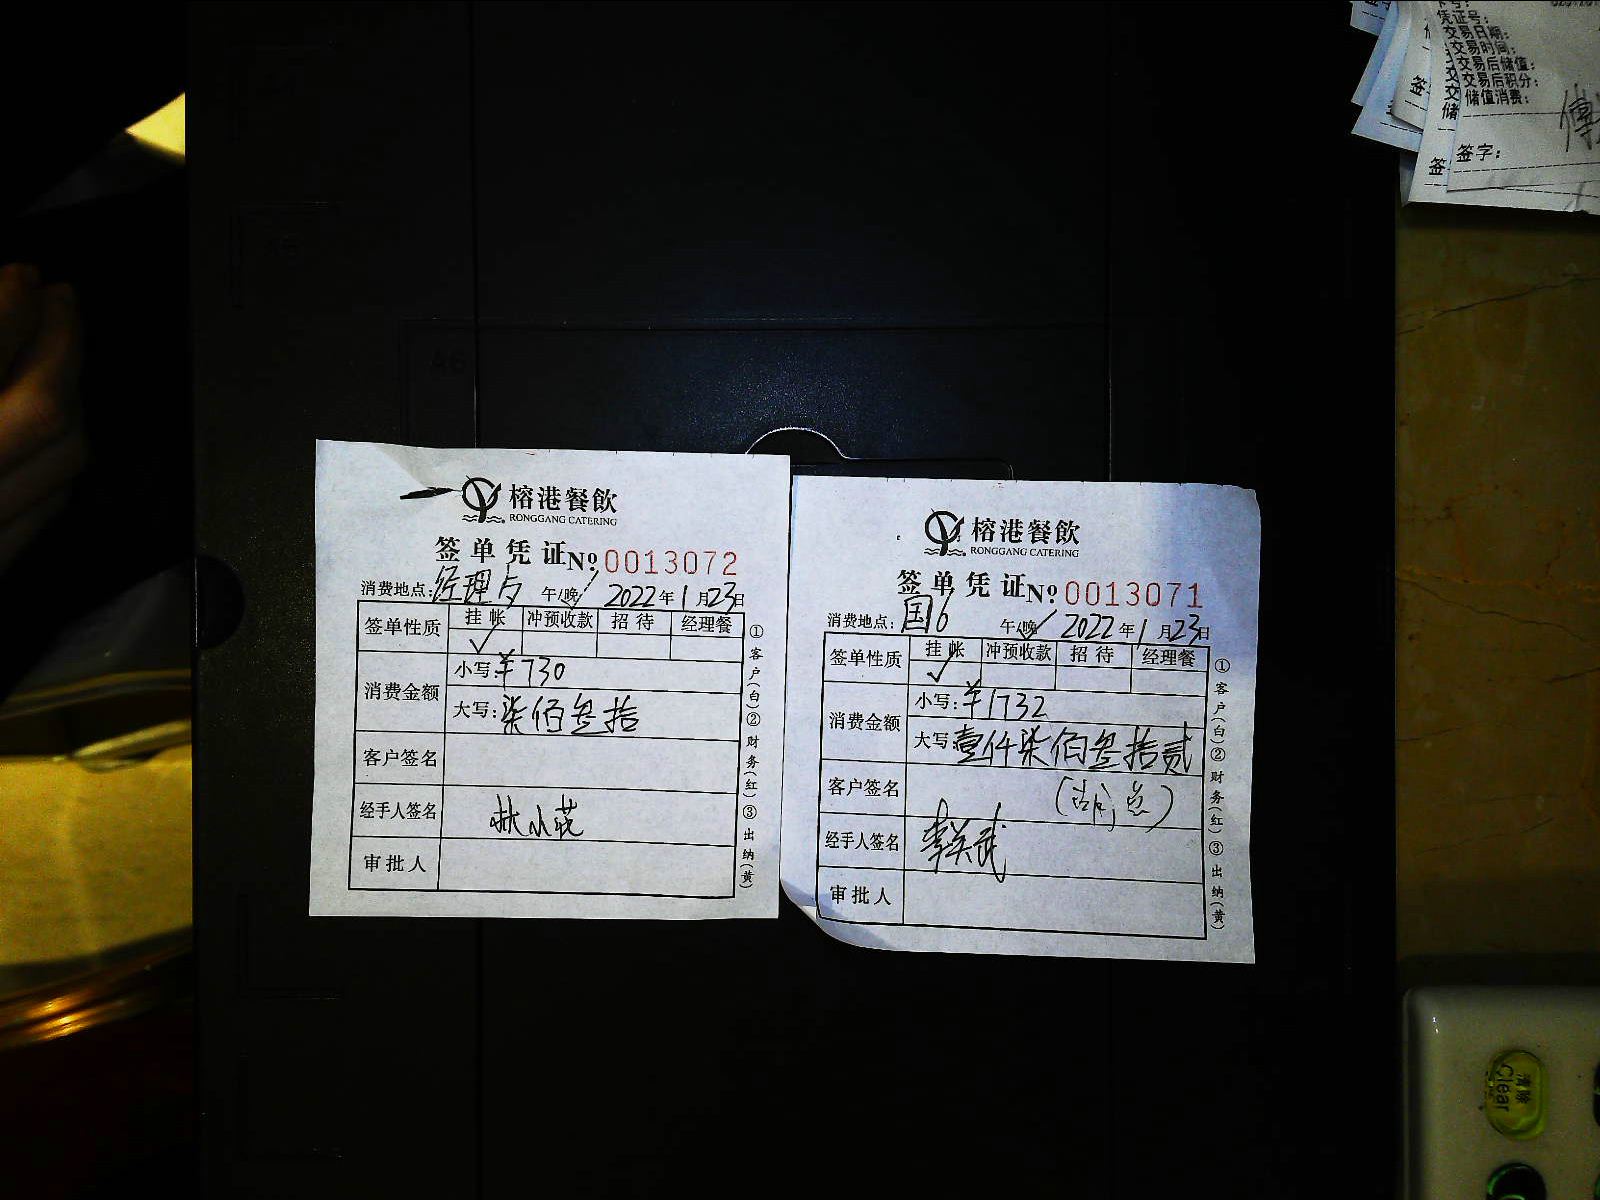 榕港餐飲
RONGGANG CATERING
签单凭证 № 0013072
消费地点: 经理 午/晚 2022年1月23日
签单性质 挂帐 冲预收款 招待 经理餐
✓
消费金额 小写:¥730
大写:柒佰叁拾
客户签名
经手人签名 林小花
审批人
①客户(白)②财务(红)③出纳(黄)
榕港餐飲
RONGGANG CATERING
签单凭证 № 0013071
消费地点: 国6 午/晚 2022年1月23日
签单性质 挂帐 冲预收款 招待 经理餐
✓
消费金额 小写:¥1732
大写:壹仟柒佰叁拾贰
客户签名
经手人签名 李关武
审批人
①客户(白)②财务(红)③出纳(黄)
凭证号:
交易日期:
交易时间:
交易后储值:
交易后积分:
储值消费:
签字:
清除
Clear
A6